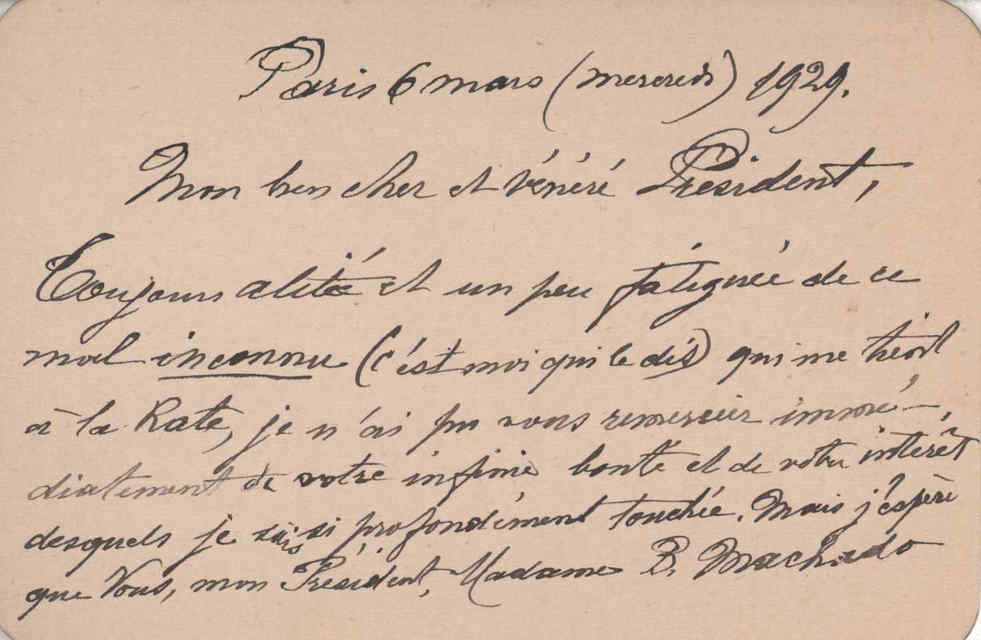 Paris 6 mars (mercredi) 1929.
Mon bien cher et vénéré Président,
Toujours alitée et un peu fatiguée de ce
mal inconnu (c'est moi qui le dis) qui me tient
à la Rate, je n'ai pu vous remercier immé-
diatement de votre infinie bonté et de votre intérêt
desquels je suis si profondément touchée. Mais j'espère
que Vous, mon Président, Madame B. Machado